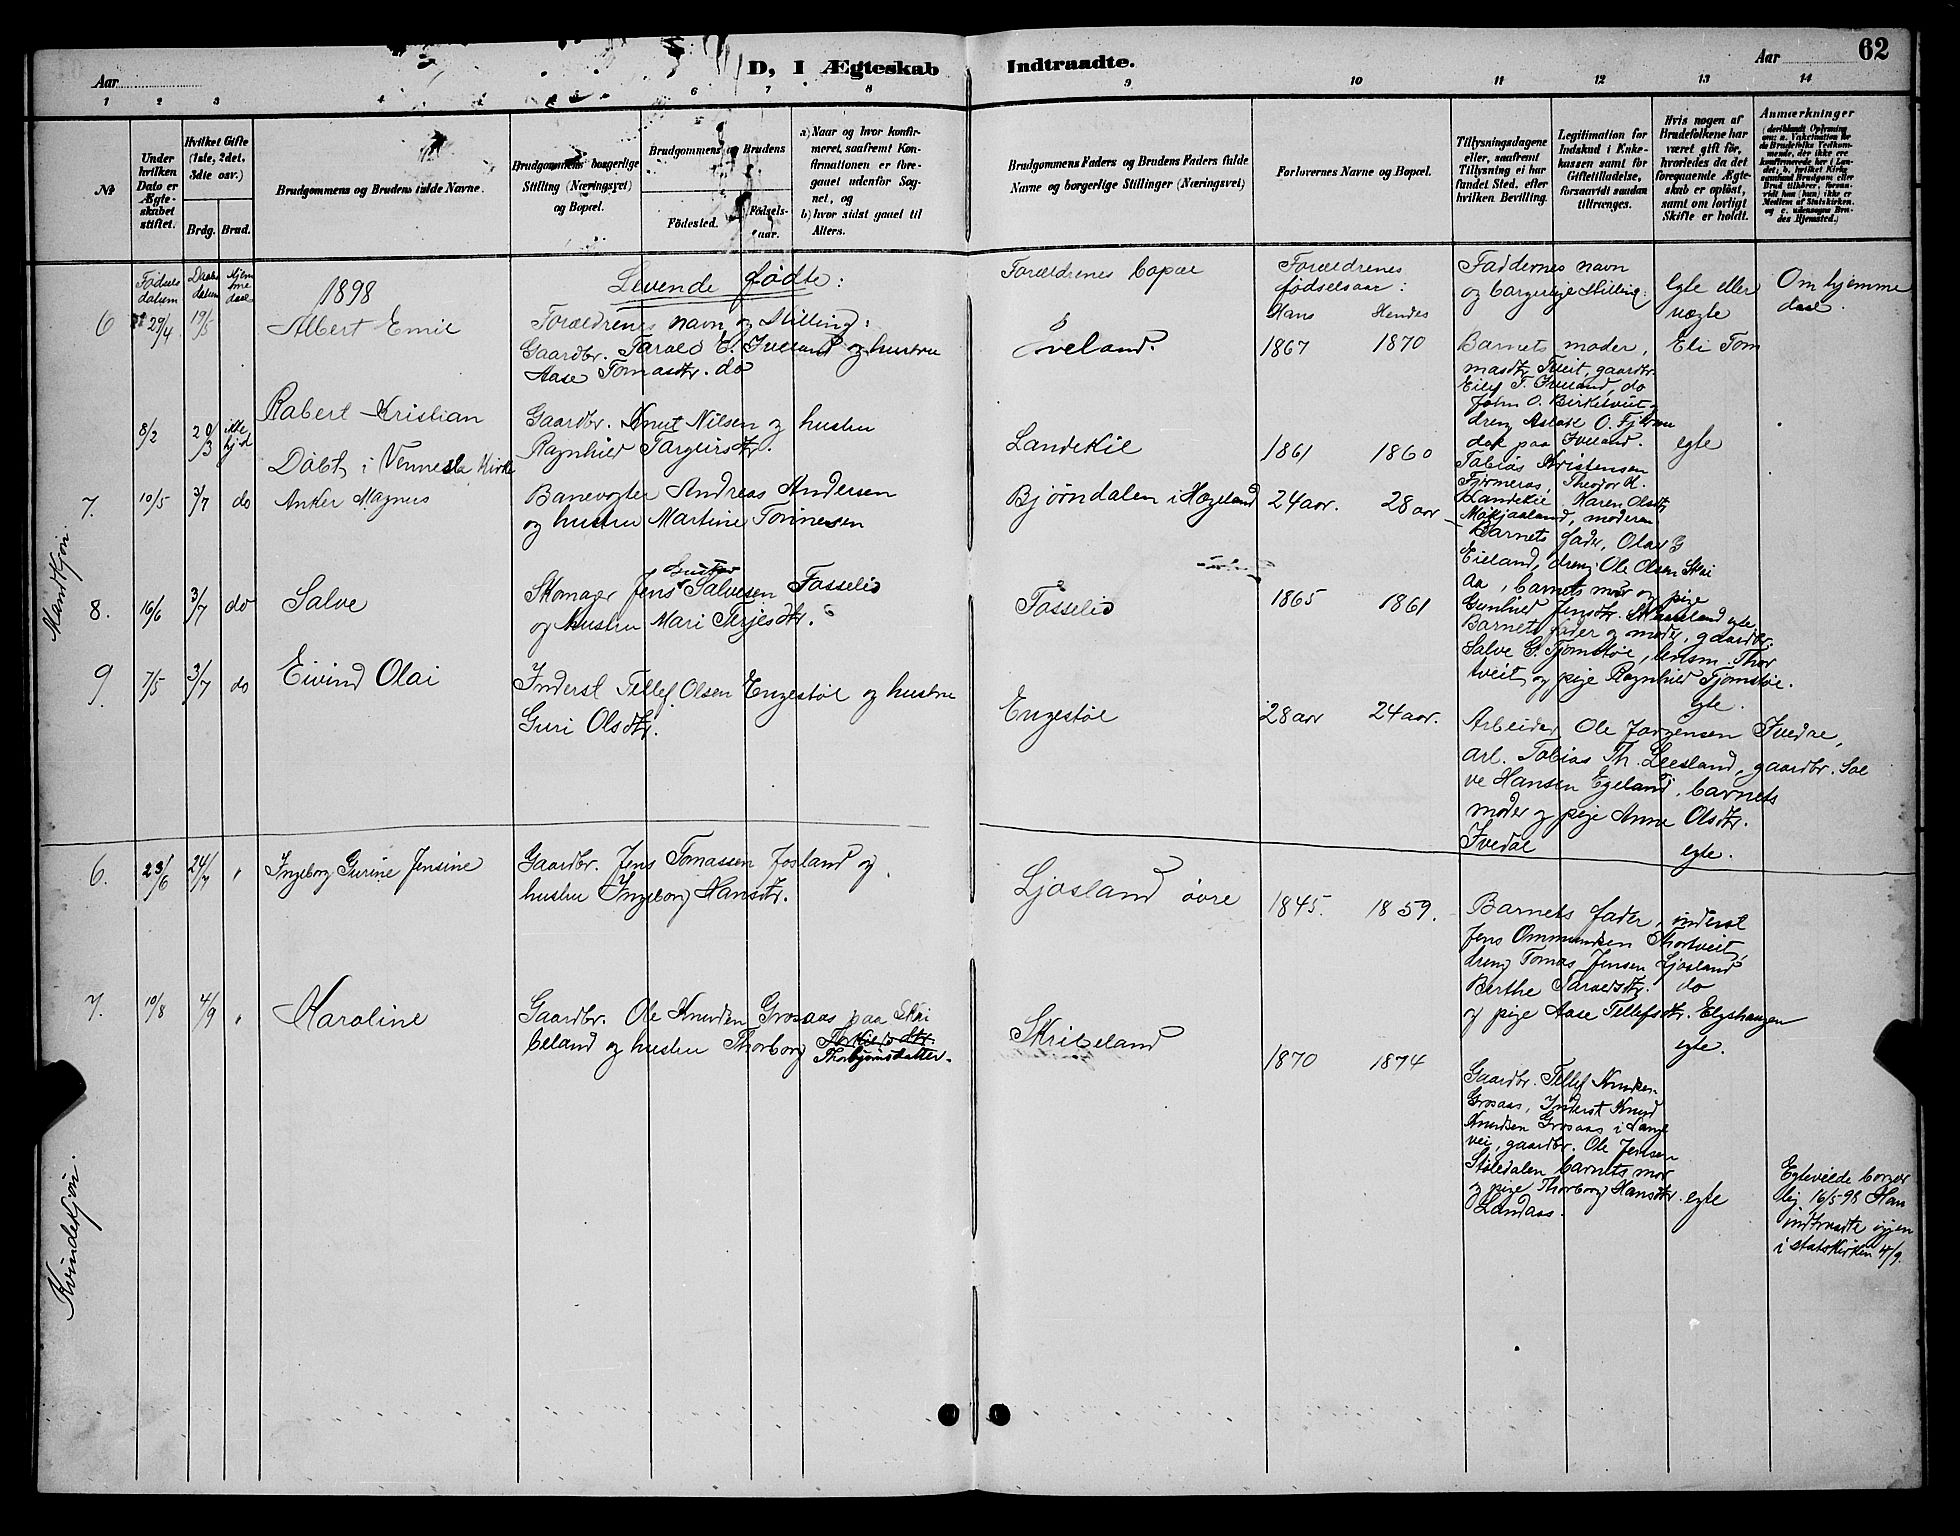 62
Aar
D, I Ægteskab Indtraadte.
Aar
1 2 3 4 5 6 7 8 9 10 11 12 13 14
№
Under hvilken Dato er Ægteskabet stiftet.
Hvilket Gifte (1ste, 2det, 3die osv.)
Brdg. Brud.
Brudgommens og Brudens fulde Navne.
Brudgommens borgerlige Stilling (Næringsvei) og Bopæl.
Brudgommens og Brudens
Fødested.
Fødsels-aar.
a) Naar og hvor konfirmeret, saafremt Konfirmationen er foregaaet udenfor Sognet, og
b) hvor sidst gaaet til Alters.
Brudgommens Faders og Brudens Faders fulde Navne og borgerlige Stillinger (Næringsvei)
Forlovernes Navne og Bopæl.
Tillysningsdagene eller, saafremt Tillysning ei har fundet Sted, efter hvilken Bevilling.
Legitimation for Indskud i Enkekassen samt for Giftetilladelse, forsaavidt saadan tiltrænges.
Hvis nogen af Brudefolkene har været gift før, hvorledes da det foregaaende Ægteskab er opløst, samt om lovligt Skifte er holdt.
Anmærkninger
Fødsels datum
Daabs datum
Hjemme daab
1898
Levende fødte:
Forældrenes navn og Stilling:
Forældrenes bopæl
Forældrenes fødselsaar:
Hans Hendes
Faddernes navn og borgerlige Stilling:
egte eller uægte
Om hjemme daab.
Mandkjøn
6 29/4 19/5 Albert Emil
Gaardbr. Tarald E. Iveland og hustru
Aase Tomasdtr. do
Iveland. 1867 1870
Barnets moder, Eli Tom
masdtr. Tveit, gaardbr.
Eilef T. Iveland, do
John O. Birketveit
dreng Aslak O. Fjerme
dok paa Iveland.
8/2 20/3 ikke hj.d Robert Kristian
Døbt i Vennesla Kirke
Gaardbr. Knut Nilsen og hustru
Ragnhild Targiersdtr.
Landekil 1861 1860 egte
Tobias Kristensen
Fjermeros, Theodor K.
Landekil Karen Olsdtr.
Mokjaaland, moderen
7. 10/5 3/7 do Anker Magnus
Banevogter Andreas Andersen
og hustru Martine Tønnesen
Bjørndalen i Hægeland 24 aar. 28 aar
Barnets fader, Olav G
Eieland, dreng Ole Olsen Skai
aa, barnets mor og pige
Gunhild Jensdtr. Skailand egte
8. 16/6 3/7 do Salve
Skomager Jens Gustav Salvesen Fosselie
og hustru Mari Terjesdtr.
Fosselie 1865 1861
Barnets fader og moder, gaardbr.
Salve G. Tjomstøl, lensm. Thor
tveit og pige Ragnhild Tjomstøl.
egte.
9. 7/5 3/7 do Eivind Olai
Inderst Tellef Olsen Engestøl og hustru
Guri Olsdtr.
Engestøl 28 aar 24 aar.
Arbeider Ole Jørgensen Ivedal,
arb. Tobias Th. Leesland, gaardbr. Sal
ve Hansen Egeland, barnets
moder og pige Anne Olsdtr.
Ivedal egte.
Kvindekjøn.
6. 23/6 24/7 " Ingeborg Gurine Jensine
Gaardbr. Jens Tomassen Josland og
hustru Ingeborg Hansdtr.
Ljosland øvre 1845. 1859.
Barnets fader, inderst
Jens Ommundsen Thortveit,
dreng Tomas Jensen Ljosland
Berthe Taraldsdtr. do
og pige Aase Tellefsdtr. Elgshaugen
egte.
7. 10/8 4/9 " Karoline
Gaardbr. Ole Knudsen Grosaas paa Skri
beland og hustru Thorborg Torkildsdtr.
Thorbjørnsdatter.
Skribeland 1870 1874
Gaardbr. Tellef Knudsen
Grosaas, Inderst Knud
Knudsen Grosaas i Lange
vei, gaardbr. Ole Jensen
Støledalen barnets mor
og pige Thorborg Hansdtr.
Landaas.
egte
Egteviede borger
lig 16/5 98 Han
indtraadte igjen
i statskirken 4/9.